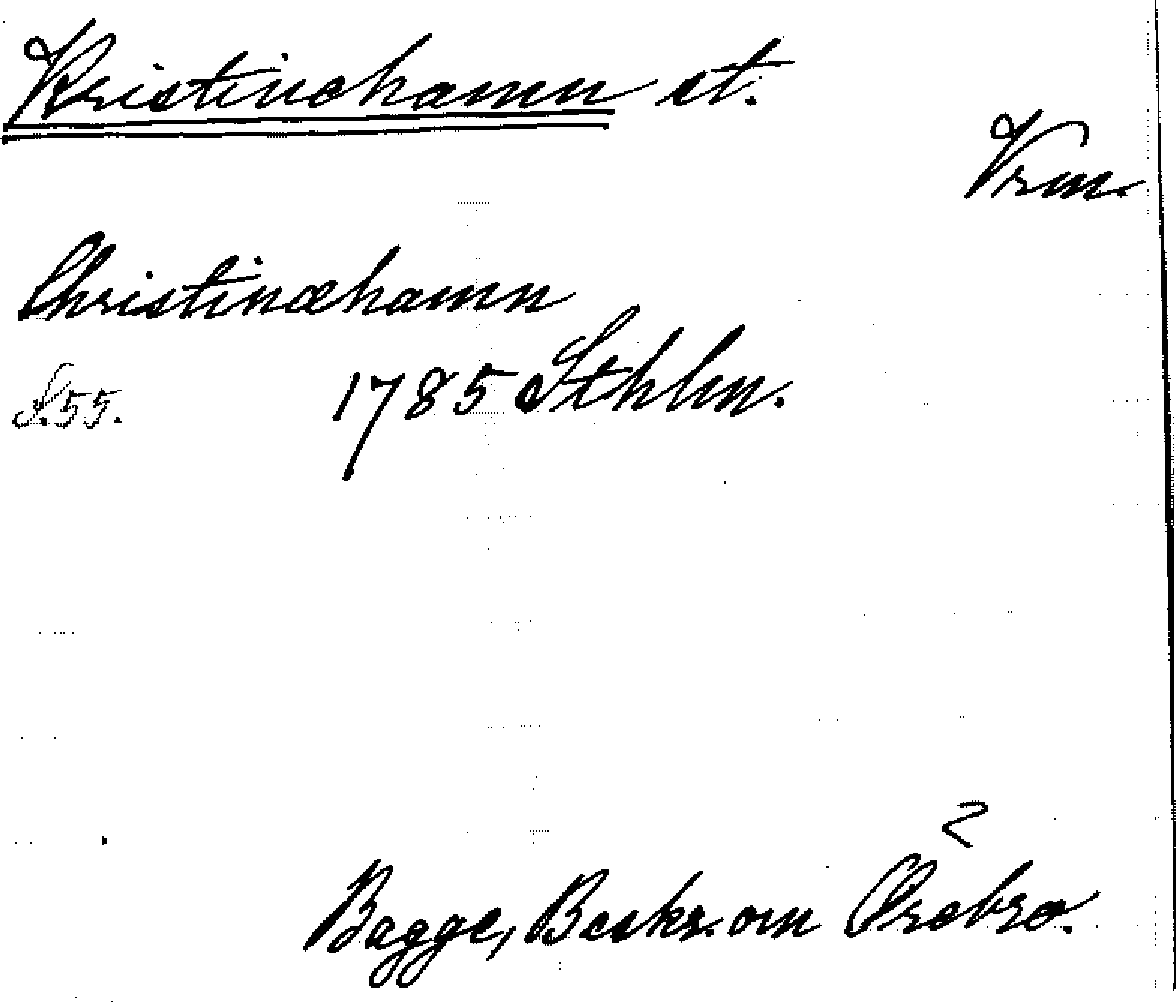 Kristinehamn st.
Vrm.
Christinæhamn
S.55. 1785 Sthlm.
2
Bagge, Beskr. om Örebro.